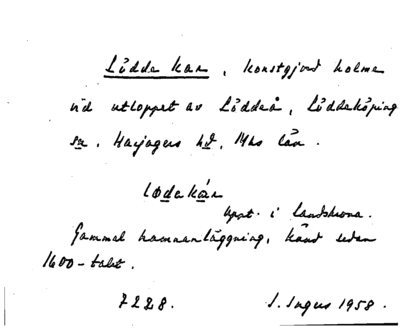 Lödde kar, konstgjord holme
vid utloppet av Löddeå, Löddeköping
sn. Harjagers hd, Mhs län.
lødekár
uppt. i Landskrona.
Gammal hamnanläggning, känd sedan
1600-talet.
7228.
S. Ingers 1958.